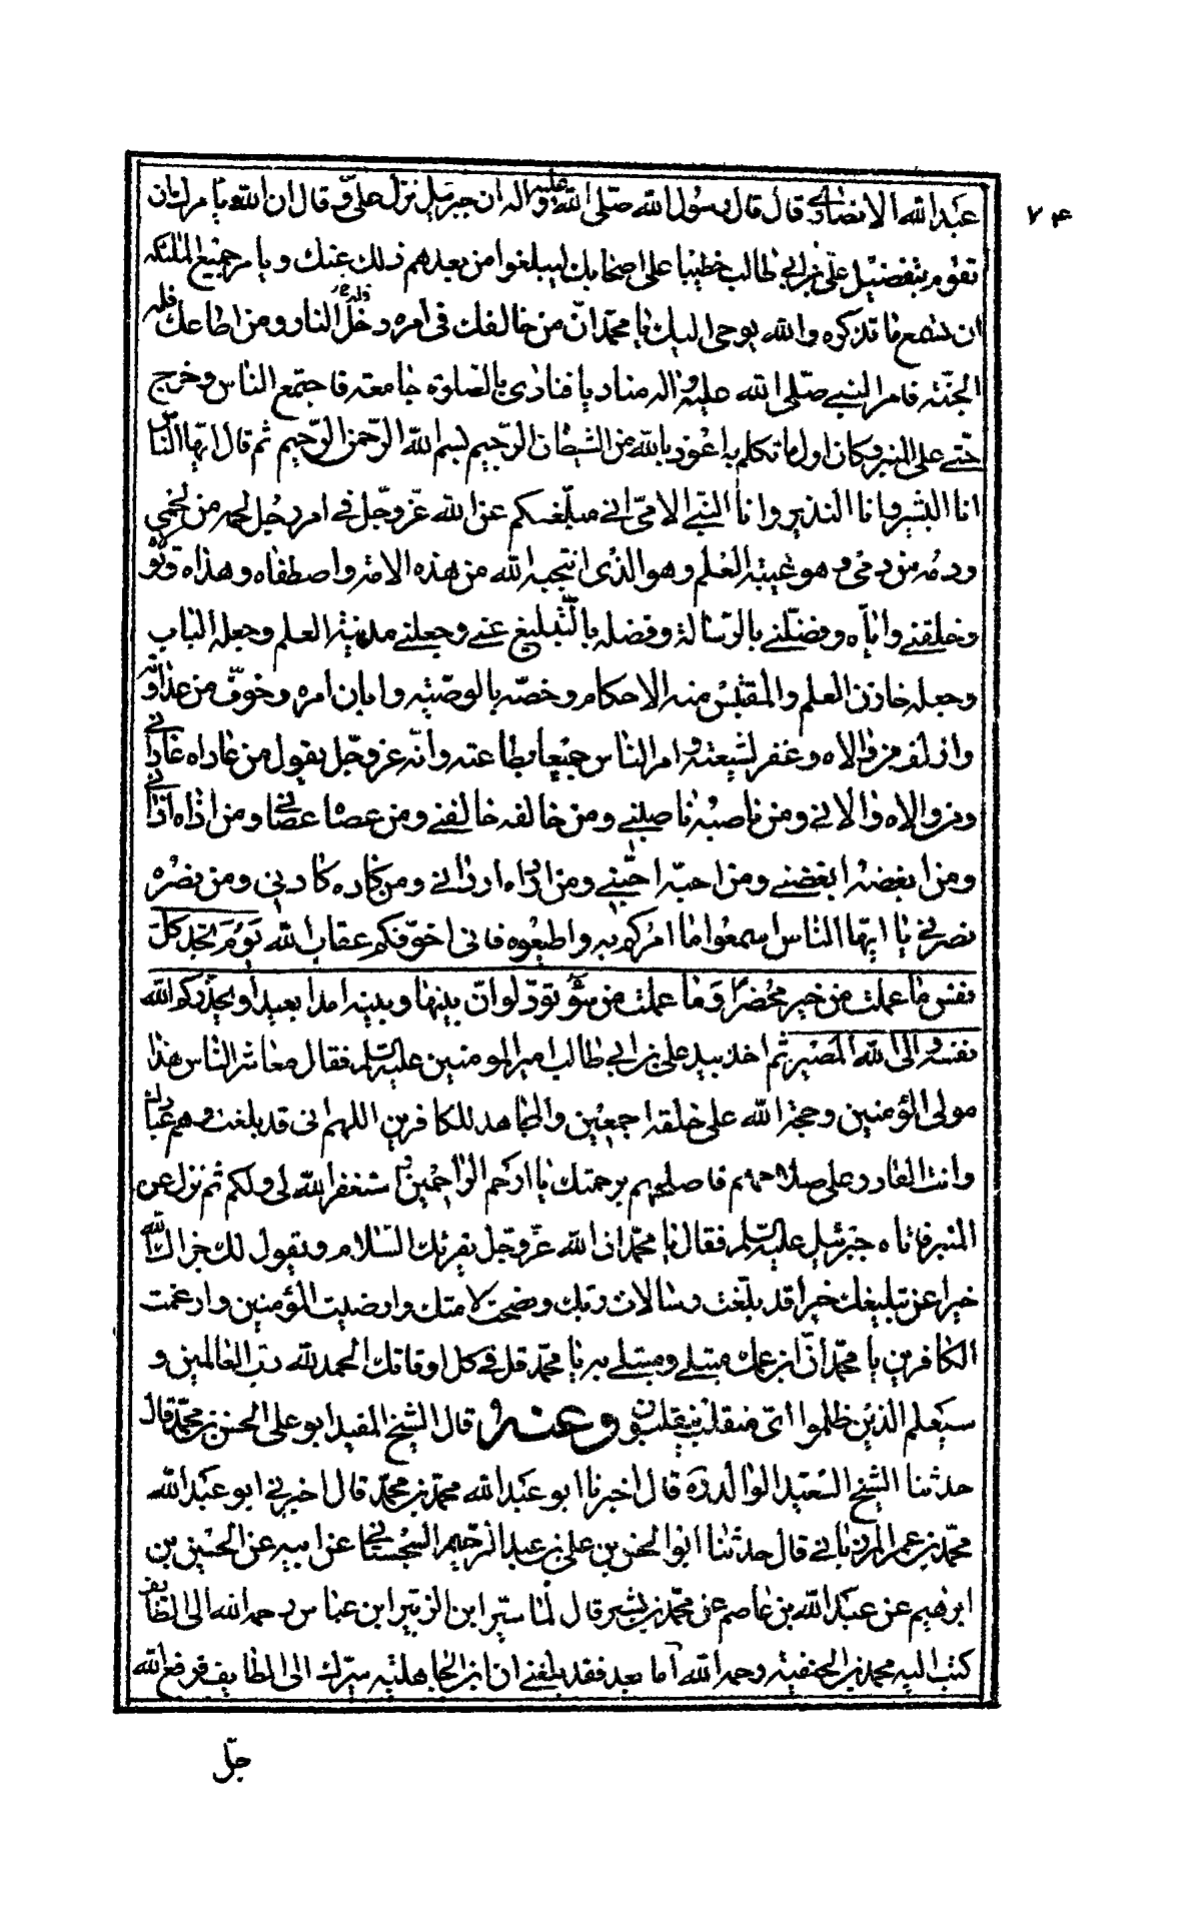 ٧۴
عبد الله الانصاری قال قال رسول الله صلّى الله علیه واله ان جبرئیل نزل علیّ وقال ان الله یامرك ان
تقوم بتفضیل علی بن ابی طالب خطیبا على اصحابك لیبلغوا من بعدهم ذلك عنك ویامر جمیع الملئكة
ان تسمع ما تذكره والله یوحی الیك یا محمّد انّ من خالفك فی امره دخل النار ومن اطاعك فله
الجنّة فامر النبی صلّى الله علیه واله منادیا فنادى بالصلوة جامعة فاجتمع الناس وخرج
حتى على المنبر وكان اول ما تكلم به اعوذ بالله من الشیطان الرجیم بسم الله الرّحمن الرّحیم ثم قال ایّها الناس
انا البشیر وانا النذیر وانا النبی الامیّ انی مبلّغكم عن الله عزّ وجّل فی امر رجل لحمه من لحمی
ودمه من دمی وهو عیبة العلم وهو الذی انتجبه الله من هذه الامة واصطفاه وهداه وتولاه
وخلقنی وایّاه وفضّلنی بالرّسالة وفضله بالتّبلیغ عنی وجعلنی مدینة العلم وجعله الباب
وجعله خازن العلم والمقتبس منه الاحكام وخصّه بالوصیّة وابان امره وخوّف من عداوته
وازلف من والاه وغفر لشیعته وامر الناس جمیعا بطاعته وانّه عز وجّل یقول من عاداه عادانی
ومن والاه والانی ومن ناصبه ناصبنی ومن خالفه خالفنی ومن عصاه عصانی ومن اذاه اذانی
ومن ابغضه ابغضنی ومن احبّه احبّنی ومن اراده ارادنی ومن كاده كادنی ومن نصره
نصرنی یا ایّها الناس اسمعوا ما امركم به واطیعوه فانی اخوّفكم عقاب الله یَوْمَ تجد كلّ
نفس ما عملت من خیر محضرًا وَما عملت من سوء تودّ لو انّ بینها وبینه امدا بعیدا ویحذّركم الله
نفسه والى الله المصیر ثم اخذ بید علی بن ابی طالب امیر المومنین علیه السلم فقال معاشر الناس هذا
مولى المؤمنین وحجة الله على خلقه اجمعین والمجاهد للكافرین اللهم انی قد بلغت وهم عبادك
وانت القادر على صلاحهم فاصلحهم برحمتك یا ارحم الرّاحمین استغفر الله لی ولكم ثم نزل عن
المنبر فاتاه جبرئیل علیه السلم فقال یا محمّد ان الله عزّ وجّل یقرئك السّلام ویقول لك جزاك الله
خیرا عن تبلیغك خیرا قد بلّغت رسالات ربّك ونصحت لامتك وارضیت المؤمنین وارغمت
الكافرین یا محمّد انّ ابن عمك مبتلى ومبتلى به یا محمّد قل فی كل اوقاتك الحمد لله رب العالمین و
سیعلم الذین ظلموا ایّ منقلب ینقلبون وعنه قال الشیخ المفید ابو علی الحسن بن محمّد قال
حدثنا الشیخ السّعید الوالد ره قال اخبرنا ابو عبد الله محمّد بن محمّد قال اخبرنی ابو عبد الله
محمّد بن عمر المرزبانی قال حدثنا ابو الحسن بن علی بن عبد الرّحیم السجستانی عن ابیه عن الحسین بن
ابرهیم عن عبد الله بن عاصم عن محمّد بن بشیر قال لمّا سیّر ابن الزبیر ابن عباس رحمه الله الى الطایف
كتب الیه محمّد بن الحنفیة رحمه الله اما بعد فقد بلغنی ان ابن الجاهلیة سیّرك الى الطایف فرفع الله
جّل